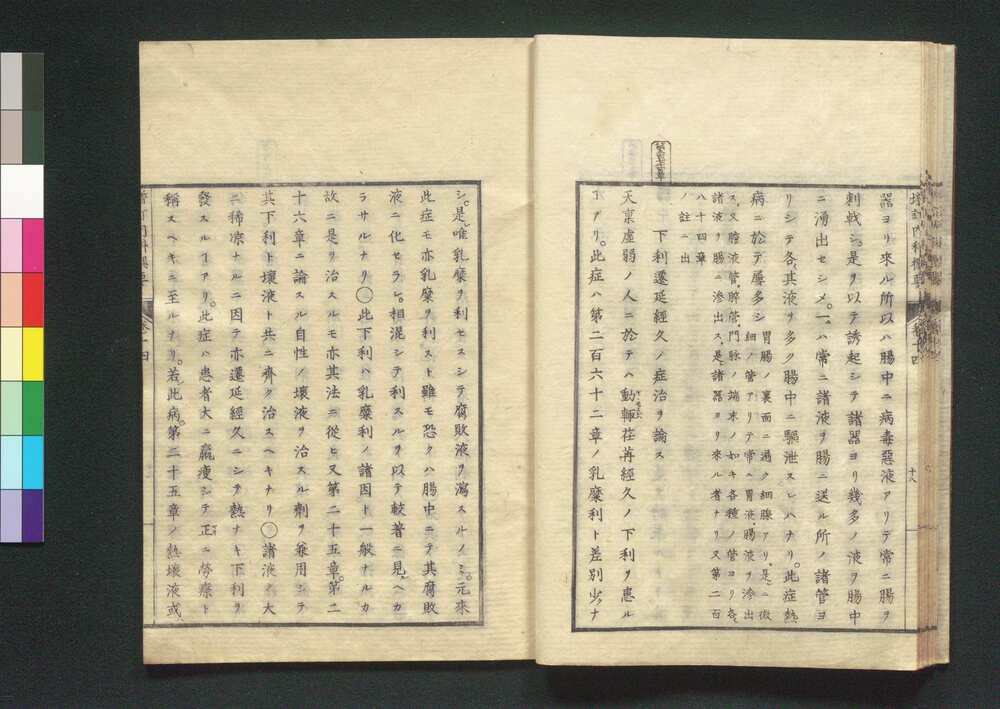 器ヨリ來ル所以ハ腸中ニ病毒惡液アリテ常ニ腸ヲ
刺戟シ是ヲ以テ誘起シテ諸器ヨリ幾多ノ液ヲ腸中
ニ湧出セシメ一ハ常ニ諸液ヲ腸ニ送ル所ノ諸管ヨ
リシテ各其液ヲ多ク腸中ニ驅泄スレハナリ此症熱
病ニ於テ屢多シ
胃腸ノ裏面ニ遍ク細腺アリ是ニ微
細ノ管アリテ常ニ胃液腸液ヲ滲出
ス又膽液管膵管門脉ノ端末ノ如キ各種ノ管ヨリ各
諸液ヲ腸ニ滲出ス是諸器ヨリ來ル者ナリ又第二百
八十四章
ノ註ニ出
下利遷延經久ノ症治ヲ論ス
天稟虛弱ノ人ニ於テハ動輒荏苒經久ノ下利ヲ患ル
ヿアリ此症ハ第二百六十二章ノ乳糜利ト差別少ナ
シ是唯乳糜ヲ利セスシテ腐敗液ヲ瀉スルノミ元來
此症モ亦乳糜ヲ利スト雖モ恐クハ腸中ニテ其腐敗
液ニ化セラレ相混シテ利スルヲ以テ較著ニ見ヘカ
ラサルナリ㊂此下利ハ乳糜利ノ諸因ト一般ナルカ
故ニ是ヲ治スルモ亦其法ニ從ヒ又第二十五章第二
十六章ニ論スル自性ノ壞液ヲ治スル劑ヲ兼用シテ
其下利ト壞液ト共ニ齊ク治スヘキナリ㊂諸液ノ大
ニ稀凉ナルニ因テ亦遷延經久ニシテ熱ナキ下利ヲ
發スルヿアリ此症ハ患者大ニ羸瘦シテ正ニ勞瘵ト
稱スヘキニ至ルナリ若此病第二十五章ノ熱壞液或